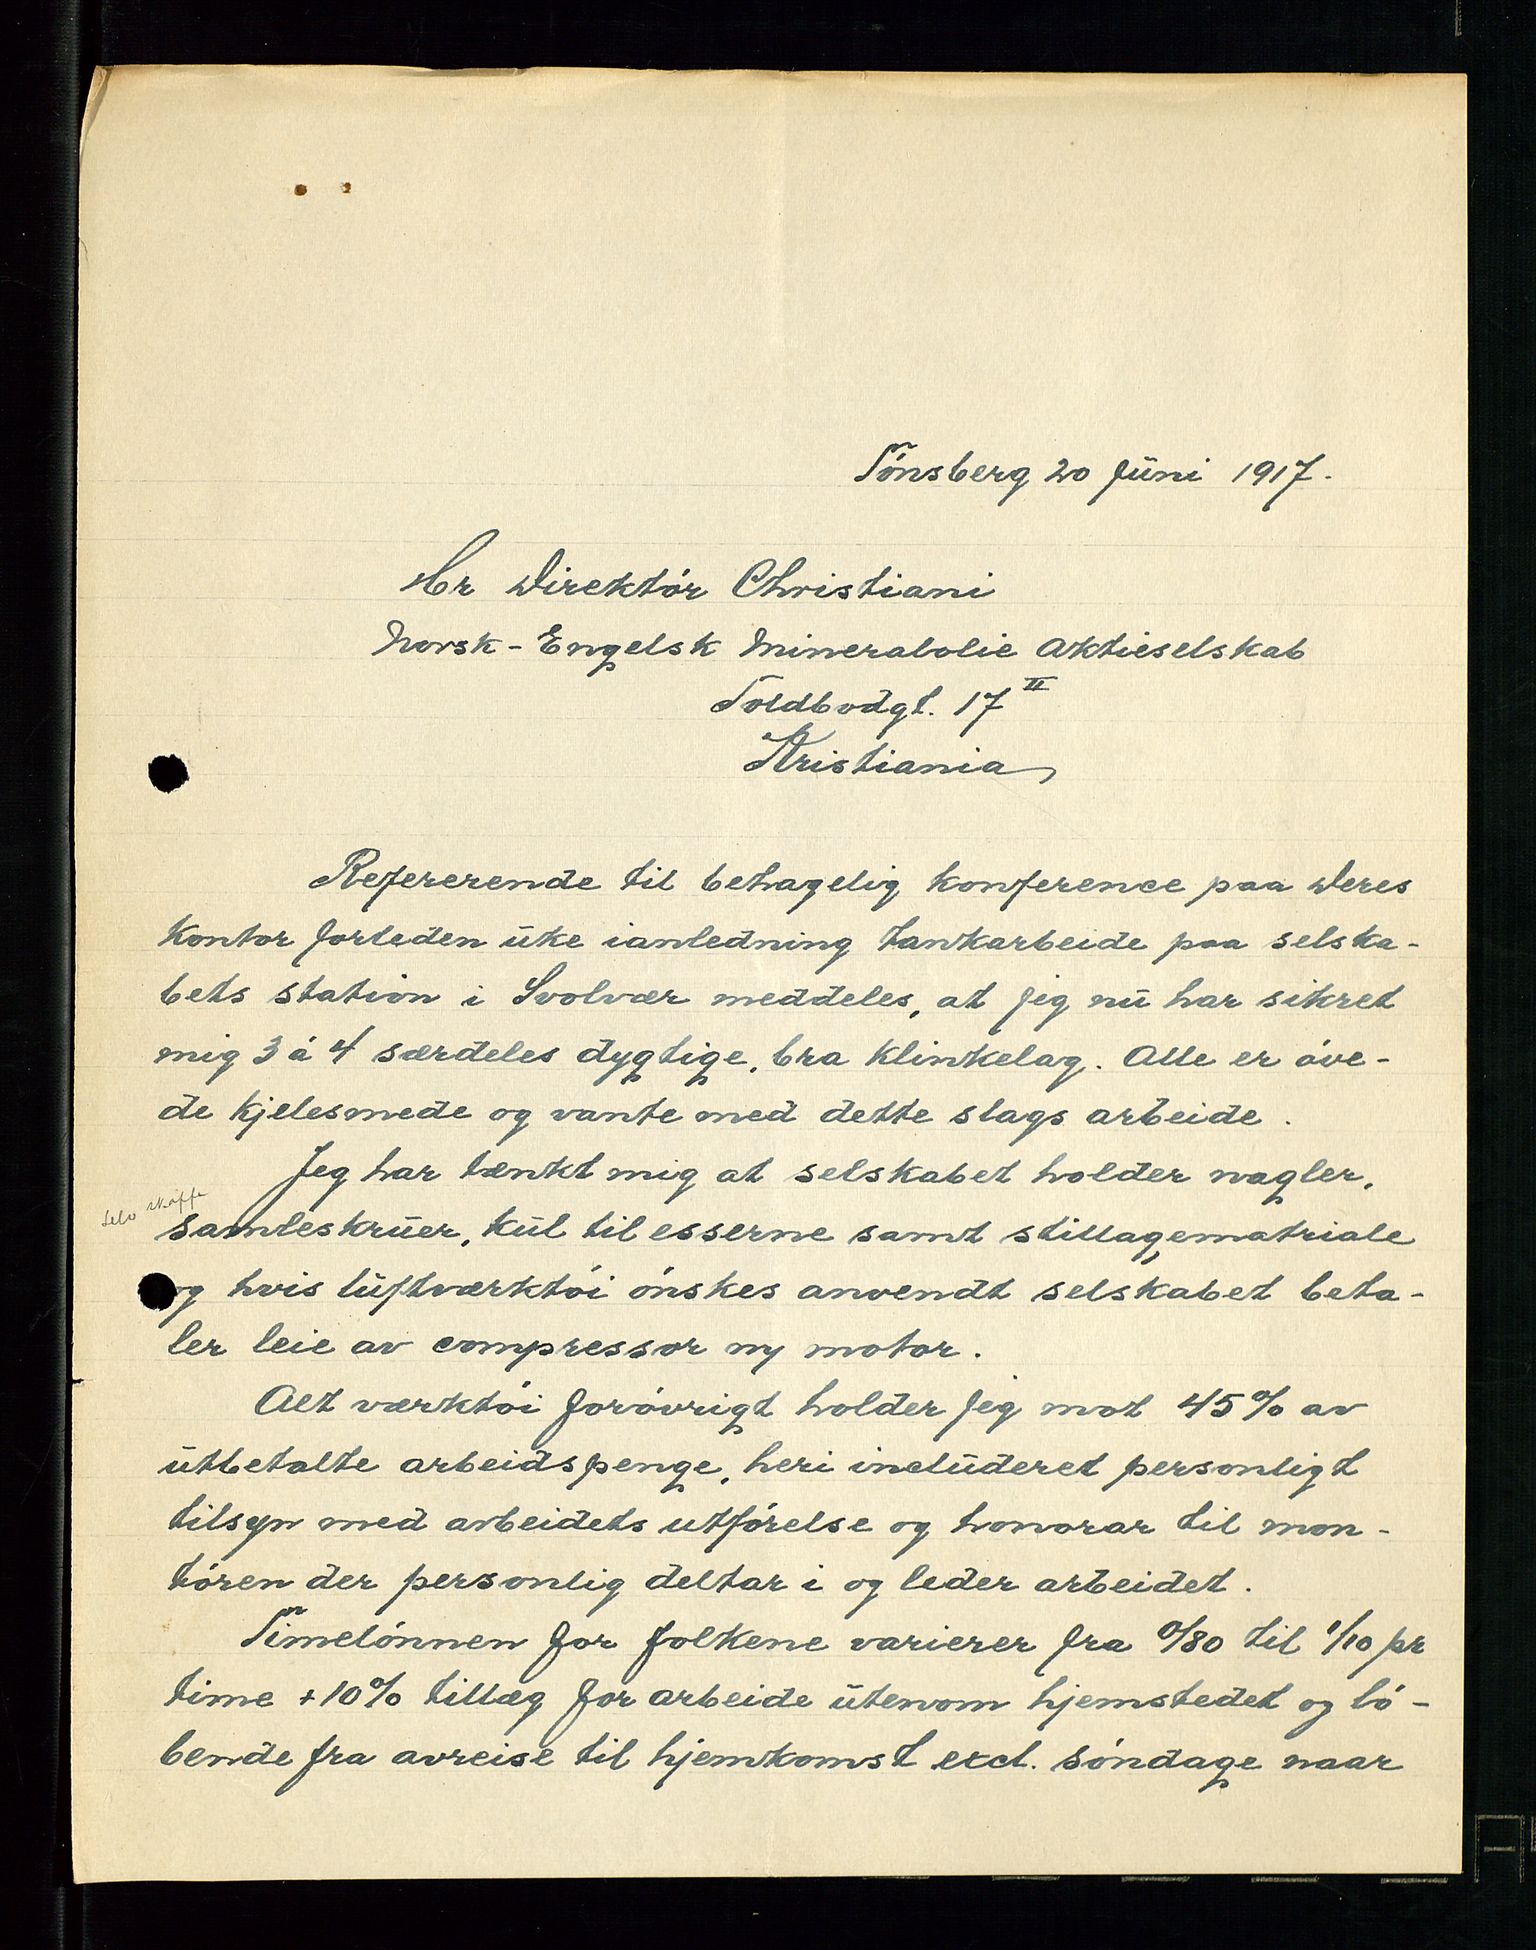 Tónsberg 20 Júni 1917.
Hr Direktór Christiani
Norsk-Engelsk Mineralolie Aktieselskab
Toldbodgt. 17 II
Kristiania
Refererende til behagelig konference paa Deres
kontor forleden uke ianledning tankarbeide paa selska-
bets station i Svolvær meddeles, at jeg nu har sikret
mig 3 á 4 særdeles dygtige, bra klinkelag. Alle er óve-
de kjelesmede og vante med dette slags arbeide.
Jeg har tænkt mig at selskabet holder nagler,
selv skaffe
samleskruer, kul til esserne samt stillagematriale
og hvis luftværktói ónskes anvendt selskabet beta-
ler leie av compressor og motor.
Alt værktói foróvrigt holder jeg mot 45% av
utbetalte arbeidspenge, heri includeret personligt
tilsyn med arbeidets utfórelse og honorar til mon-
tóren der personlig deltar i og leder arbeidet.
Timelónnen for folkene varierer fra 0/80 til 1/10 pr
time + 10% tillæg for arbeide utenom hjemstedet og ló-
bende fra avreise til hjemkomst excl. sóndage naar